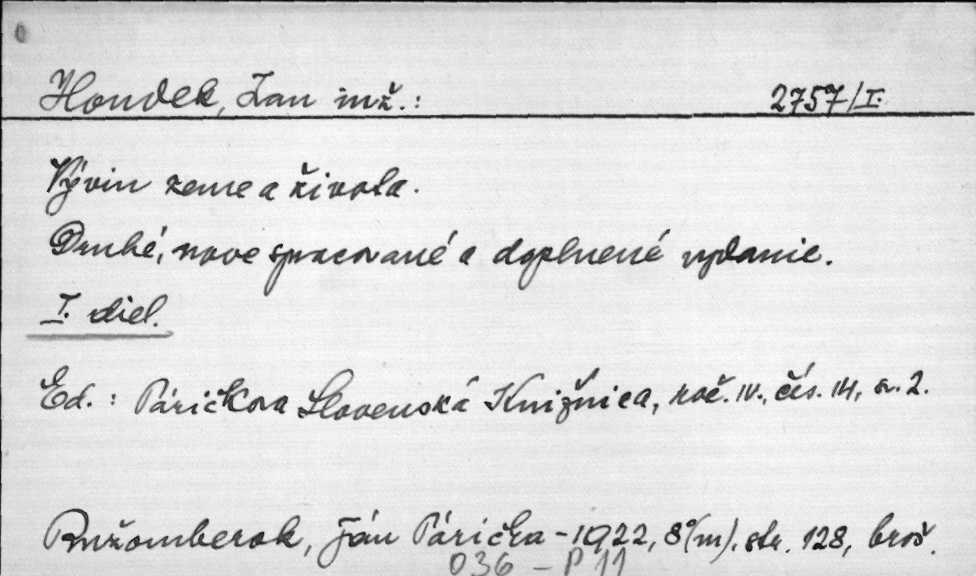 Houdek, Ian inž.: 2757/I.
Vývin zeme a života.
Druhé, nove spracované a doplnené vydanie.
I. diel.
Ed.: Páričkova Slovenská Knižnica, roč. IV., čís. 14, sv. 2.
Ružomberok, Ján Párička - 1922, 8°(m). str. 128, brož.
036 - P 11